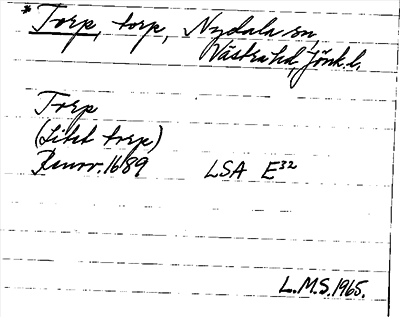 *Torp, torp, Nydala sn,
Västra hd, Jönk. l.
Torp
(Litet torp)
Renov. 1689 LSA E32
L.M.S. 1965.